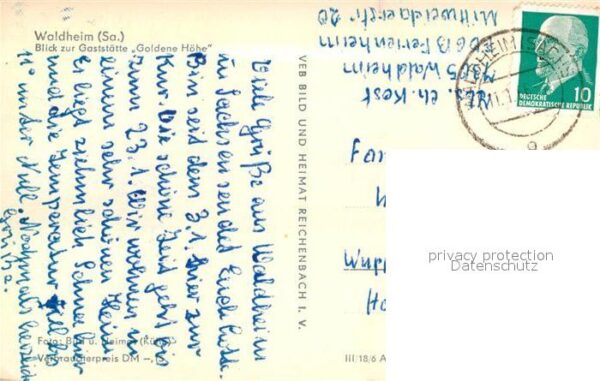 Waldheim (Sa.)
Blick zur Gaststätte „Goldene Höhe"
Viele Grüße aus Waldheim
in Sachsen sendet Euch
Bin seit dem 3.1. hier zur
Kur. Die schöne Zeit geht bis
zum 23.1. Wir wohnen in
einem sehr schönen Heim
Es liegt ziemlich Schnee hier
und die Temperatur
11° unter Null. Nochmals herzlich
Grüße.
Foto: Bild u. Heimat
Verbraucherpreis DM
VEB BILD UND HEIMAT REICHENBACH I. V.
III/18/6 A
Ch. Kost
7305 Waldheim
Ferienheim
Mittweidaerstr 20
DEUTSCHE
DEMOKRATISCHE REPUBLIK
10
Fam
Wupp
privacy protection
Datenschutz